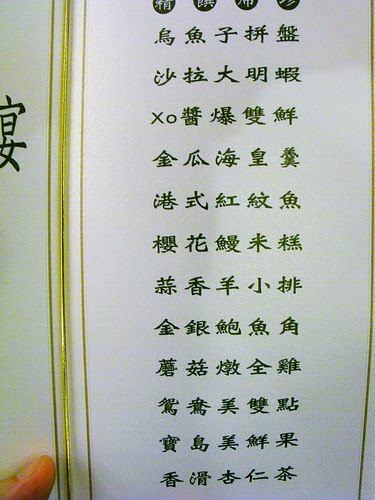 宴
精饌席珍
烏魚子拼盤
沙拉大明蝦
XO醬爆雙鮮
金瓜海皇羹
港式紅紋魚
櫻花鰻米糕
蒜香羊小排
金銀鮑魚角
蘑菇燉全雞
鴛鴦美雙點
寶島美鮮果
香滑杏仁茶